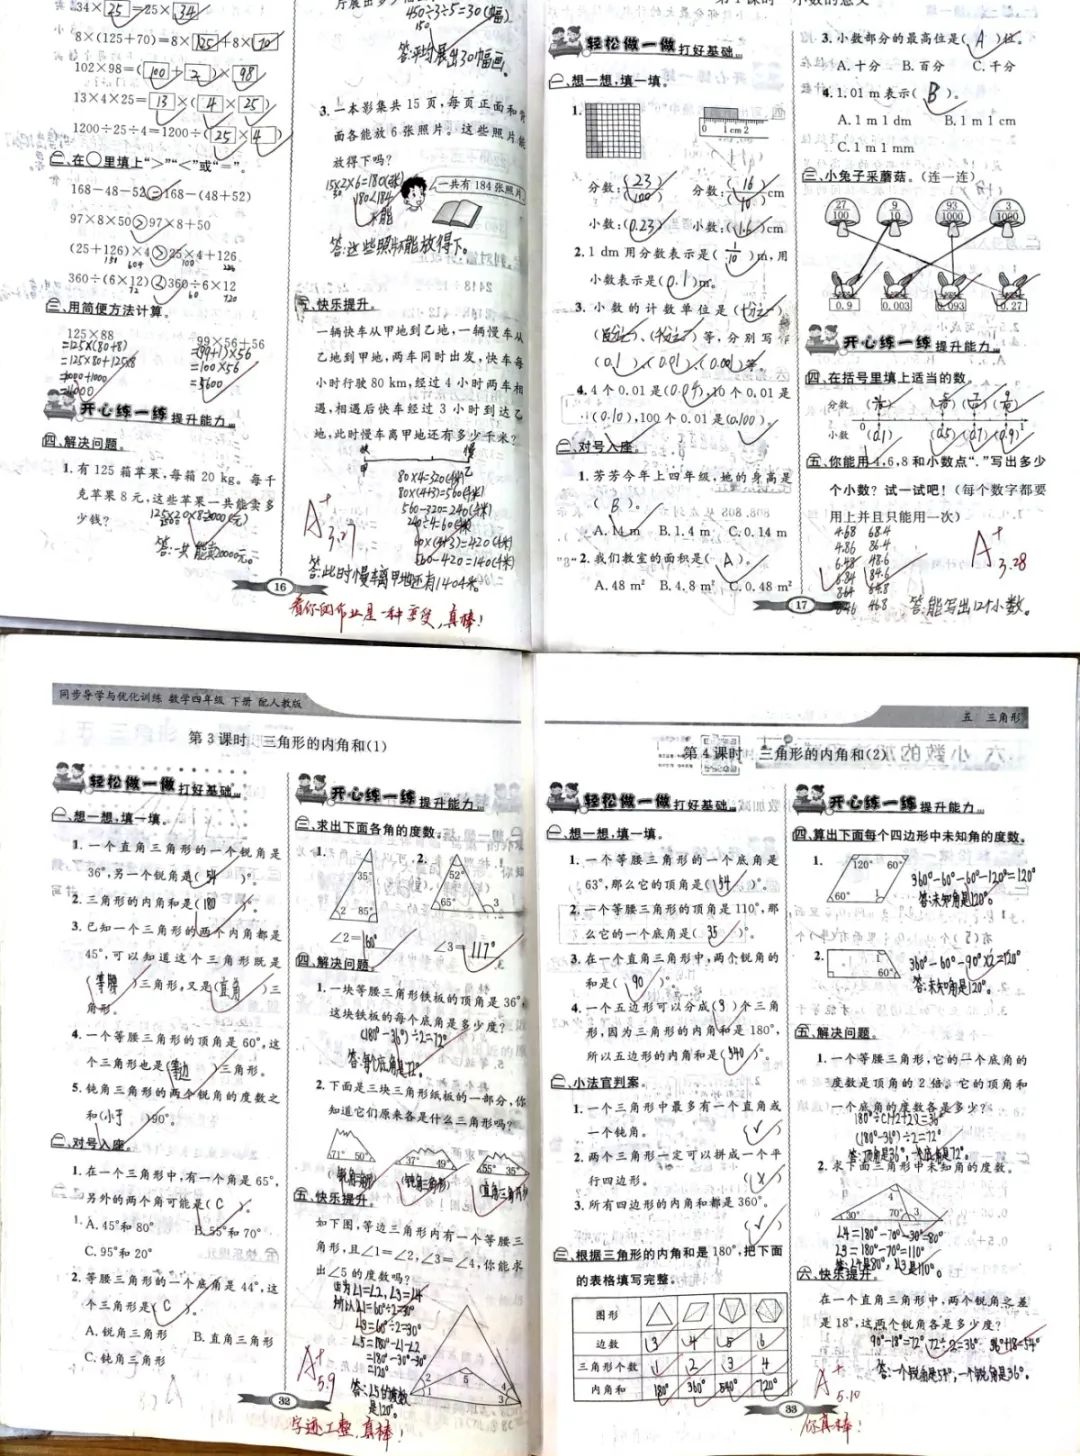 34×25=25×34
8×(125+70)=8×125+8×70
102×98=(100+2)×98
13×4×25=13×(4×25)
1200÷25÷4=1200÷(25×4)
二、在○里填上“>”“<”或“=”。
168-48-52=168-(48+52)
97×8×50>97×8+50
(25+126)×4>25×4+126
360÷(6×12)<360÷6×12
三、用简便方法计算。
125×88
=125×(80+8)
=125×80+125×8
99×56+56
=(99+1)×56
=100×56
=5600
开心练一练 提升能力
四、解决问题。
1. 有125箱苹果,每箱20 kg。每千
克苹果8元,这些苹果一共能卖多
少钱?
450÷3÷5=30(幅)
答:平均展出30幅画。
3. 一本影集共15页,每页正面和背
面各能放6张照片。这些照片能
放得下吗?
一共有184张照片
15×2×6=180(张)
180<184
不能
答:这些照片不能放得下。
五、快乐提升。
一辆快车从甲地到乙地,一辆慢车从
乙地到甲地,两车同时出发,快车每
小时行驶80 km,经过4小时两车相
遇,相遇后快车经过3小时到达乙
地,此时慢车离甲地还有多少千米?
快 慢
甲 乙
80×4=320(千米)
80×(4+3)=560(千米)
560-320=240(千米)
240÷4=60(千米)
60×(4+3)=420(千米)
560-420=140(千米)
答:此时慢车离甲地还有140千米。
A+
3.27
16
看你的作业是一种享受,真棒!
轻松做一做 打好基础
一、想一想,填一填。
1.
0 1 cm 2
分数:(23/100) 分数:(16/10)cm
小数:(0.23) 小数:(1.6)cm
2. 1 dm用分数表示是(1/10)m,用
小数表示是(0.1)m。
3. 小数的计数单位是(十分之一)
(百分之一)、(千分之一)等,分别写作
(0.1)、(0.01)、(0.001)等。
4. 4个0.01是(0.04),10个0.01是
(0.10),100个0.01是(0.100)。
二、对号入座。
1. 芳芳今年上四年级,她的身高是
(B)。
A. 14 m B. 1.4 m C. 0.14 m
2. 我们教室的面积是(A)。
A. 48 m² B. 4.8 m² C. 0.48 m²
3. 小数部分的最高位是(A)位。
A. 十分 B. 百分 C. 千分
4. 1.01 m表示(B)。
A. 1 m 1 dm B. 1 m 1 cm
C. 1 m 1 mm
三、小兔子采蘑菇。(连一连)
27/100 9/10 93/1000 3/1000
0.9 0.003 0.093 0.27
开心练一练 提升能力
四、在括号里填上适当的数。
分数
小数 (0.1) (0.5) (0.7) (0.9)
五、你能用4,6,8和小数点“.”写出多少
个小数?试一试吧!(每个数字都要
用上并且只能用一次)
4.68 68.4
4.86 86.4
6.48 48.6
6.84 84.6
8.64 64.8
8.46 46.8
答:能写出12个小数。
A+
3.28
17
同步导学与优化训练 数学四年级 下册 配人教版
第3课时 三角形的内角和(1)
轻松做一做 打好基础
一、想一想,填一填。
1. 一个直角三角形的一个锐角是
36°,另一个锐角是(54)°。
2. 三角形的内角和是(180)°。
3. 已知一个三角形的两个内角都是
45°,可以知道这个三角形既是
(等腰)三角形,又是(直角)三
角形。
4. 一个等腰三角形的顶角是60°,这
个三角形也是(等边)三角形。
5. 钝角三角形的两个锐角的度数之
和(小于)90°。
二、对号入座。
1. 在一个三角形中,有一个角是65°,
另外的两个角可能是(C)。
A. 45°和80° B. 55°和70°
C. 95°和20°
2. 等腰三角形的一个底角是44°,这
个三角形是(C)。
A. 锐角三角形 B. 直角三角形
C. 钝角三角形
开心练一练 提升能力
三、求出下面各角的度数。
1. 2.
35° 2 85°
52° 65° 3
∠2=60° ∠3=117°
四、解决问题。
1. 一块等腰三角形铁板的顶角是36°,
这块铁板的每个底角是多少度?
(180°-36°)÷2=72°
答:每个底角是72°。
2. 下面是三块三角形纸板的一部分,你
知道它们原来各是什么三角形吗?
71° 50° 37° 49° 55° 35°
(锐角三角形) (钝角三角形) (直角三角形)
五、快乐提升。
如下图,等边三角形内有一个等腰三
角形,且∠1=∠2,∠3=∠4,你能求
出∠5的度数吗?
因为∠1=∠2,∠3=∠4
所以∠1=60°÷2=30°
∠3=60°÷2=30°
∠5=180°-∠1-∠2
=180°-30°-30°
=120°
答:∠5的度数
是120°。
2 1 5 4 3
A+
5.9
32
字迹工整,真棒!
五 三角形
第4课时 三角形的内角和(2)
轻松做一做 打好基础
一、想一想,填一填。
1. 一个等腰三角形的一个底角是
63°,那么它的顶角是(54)°。
2. 一个等腰三角形的顶角是110°,那
么它的一个底角是(35)°。
3. 在一个直角三角形中,两个锐角的
和是(90)°。
4. 一个五边形可以分成(3)个三角
形,因为三角形的内角和是180°,
所以五边形的内角和是(540)°。
二、小法官判案。
1. 一个三角形中最多有一个直角或
一个钝角。 (✓)
2. 两个三角形一定可以拼成一个平
行四边形。 (×)
3. 所有四边形的内角和都是360°。
(✓)
三、根据三角形的内角和是180°,把下面
的表格填写完整。
图形
边数 3 4 5 6
三角形个数 1 2 3 4
内角和 180° 360° 540° 720°
开心练一练 提升能力
四、算出下面每个四边形中未知角的度数。
1. 120° 60° 60°
360°-60°-60°-120°=120°
答:未知角是120°。
2. 60°
360°-60°-90°×2=120°
答:未知角是120°。
五、解决问题。
1. 一个等腰三角形,它的一个底角的
度数是顶角的2倍。它的顶角和
一个底角的度数各是多少?
180°÷(1+2+2)=36°
(180°-36°)÷2=72°
答:顶角是36°,一个底角是72°。
2. 求下面三角形中未知角的度数。
30° 4 70° 3
∠4=180°-70°-30°=80°
∠3=180°-70°=110°
答:∠4是80°,∠3是110°。
六、快乐提升。
在一个直角三角形中,两个锐角之差
是18°,这两个锐角各是多少度?
90°-18°=72° 72°÷2=36° 36°+18°=54°
答:一个锐角是54°,一个锐角是36°。
A+
5.10
33
你真棒!